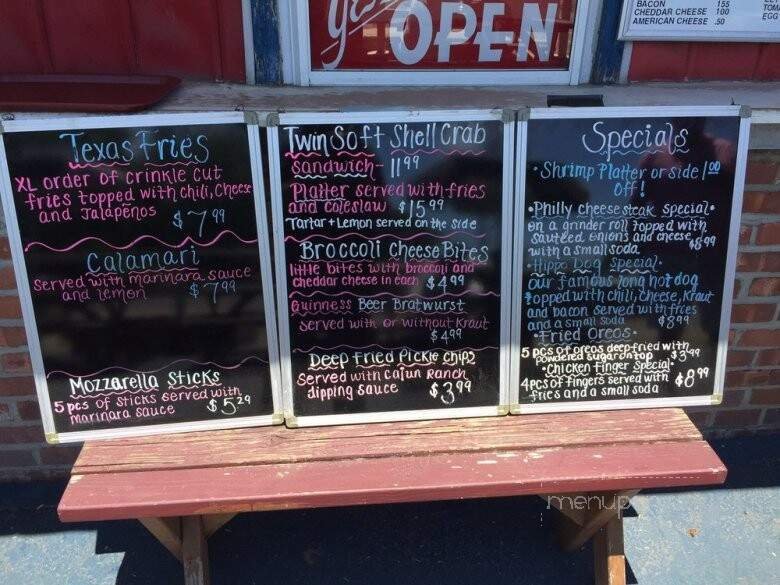 OPEN
BACON 155
CHEDDAR CHEESE 100
AMERICAN CHEESE .50
TOM
EGG
Texas Fries
XL order of crinkle cut
fries topped with chili, cheese
and Jalapeños $7.99
Calamari
served with marinara sauce
and lemon $7.99
Mozzarella Sticks
5 pcs of sticks served with
marinara sauce $5.29
Twin Soft Shell Crab
Sandwich- 11.99
Platter served with fries
and coleslaw $15.99
Tartar + Lemon served on the side
Broccoli Cheese Bites
little bites with broccoli and
cheddar cheese in each $4.99
Guinness Beer Bratwurst
served with or without Kraut
$4.99
Deep Fried Pickle Chips
Served with Cajun Ranch
dipping sauce $3.99
Specials
• Shrimp Platter or side 1.00
Off!
• Philly cheesesteak special •
on a grinder roll topped with
sautéed onions and cheese
with a small soda $8.99
• Hippo Dog special •
our famous long hot dog
topped with chili, cheese, Kraut
and bacon served with fries
and a small soda $8.99
• Fried Oreos •
5 pcs of oreos deep fried with
powdered sugar on top $3.99
• Chicken finger Special •
4 pcs of fingers served with
fries and a small soda $8.99
menupix